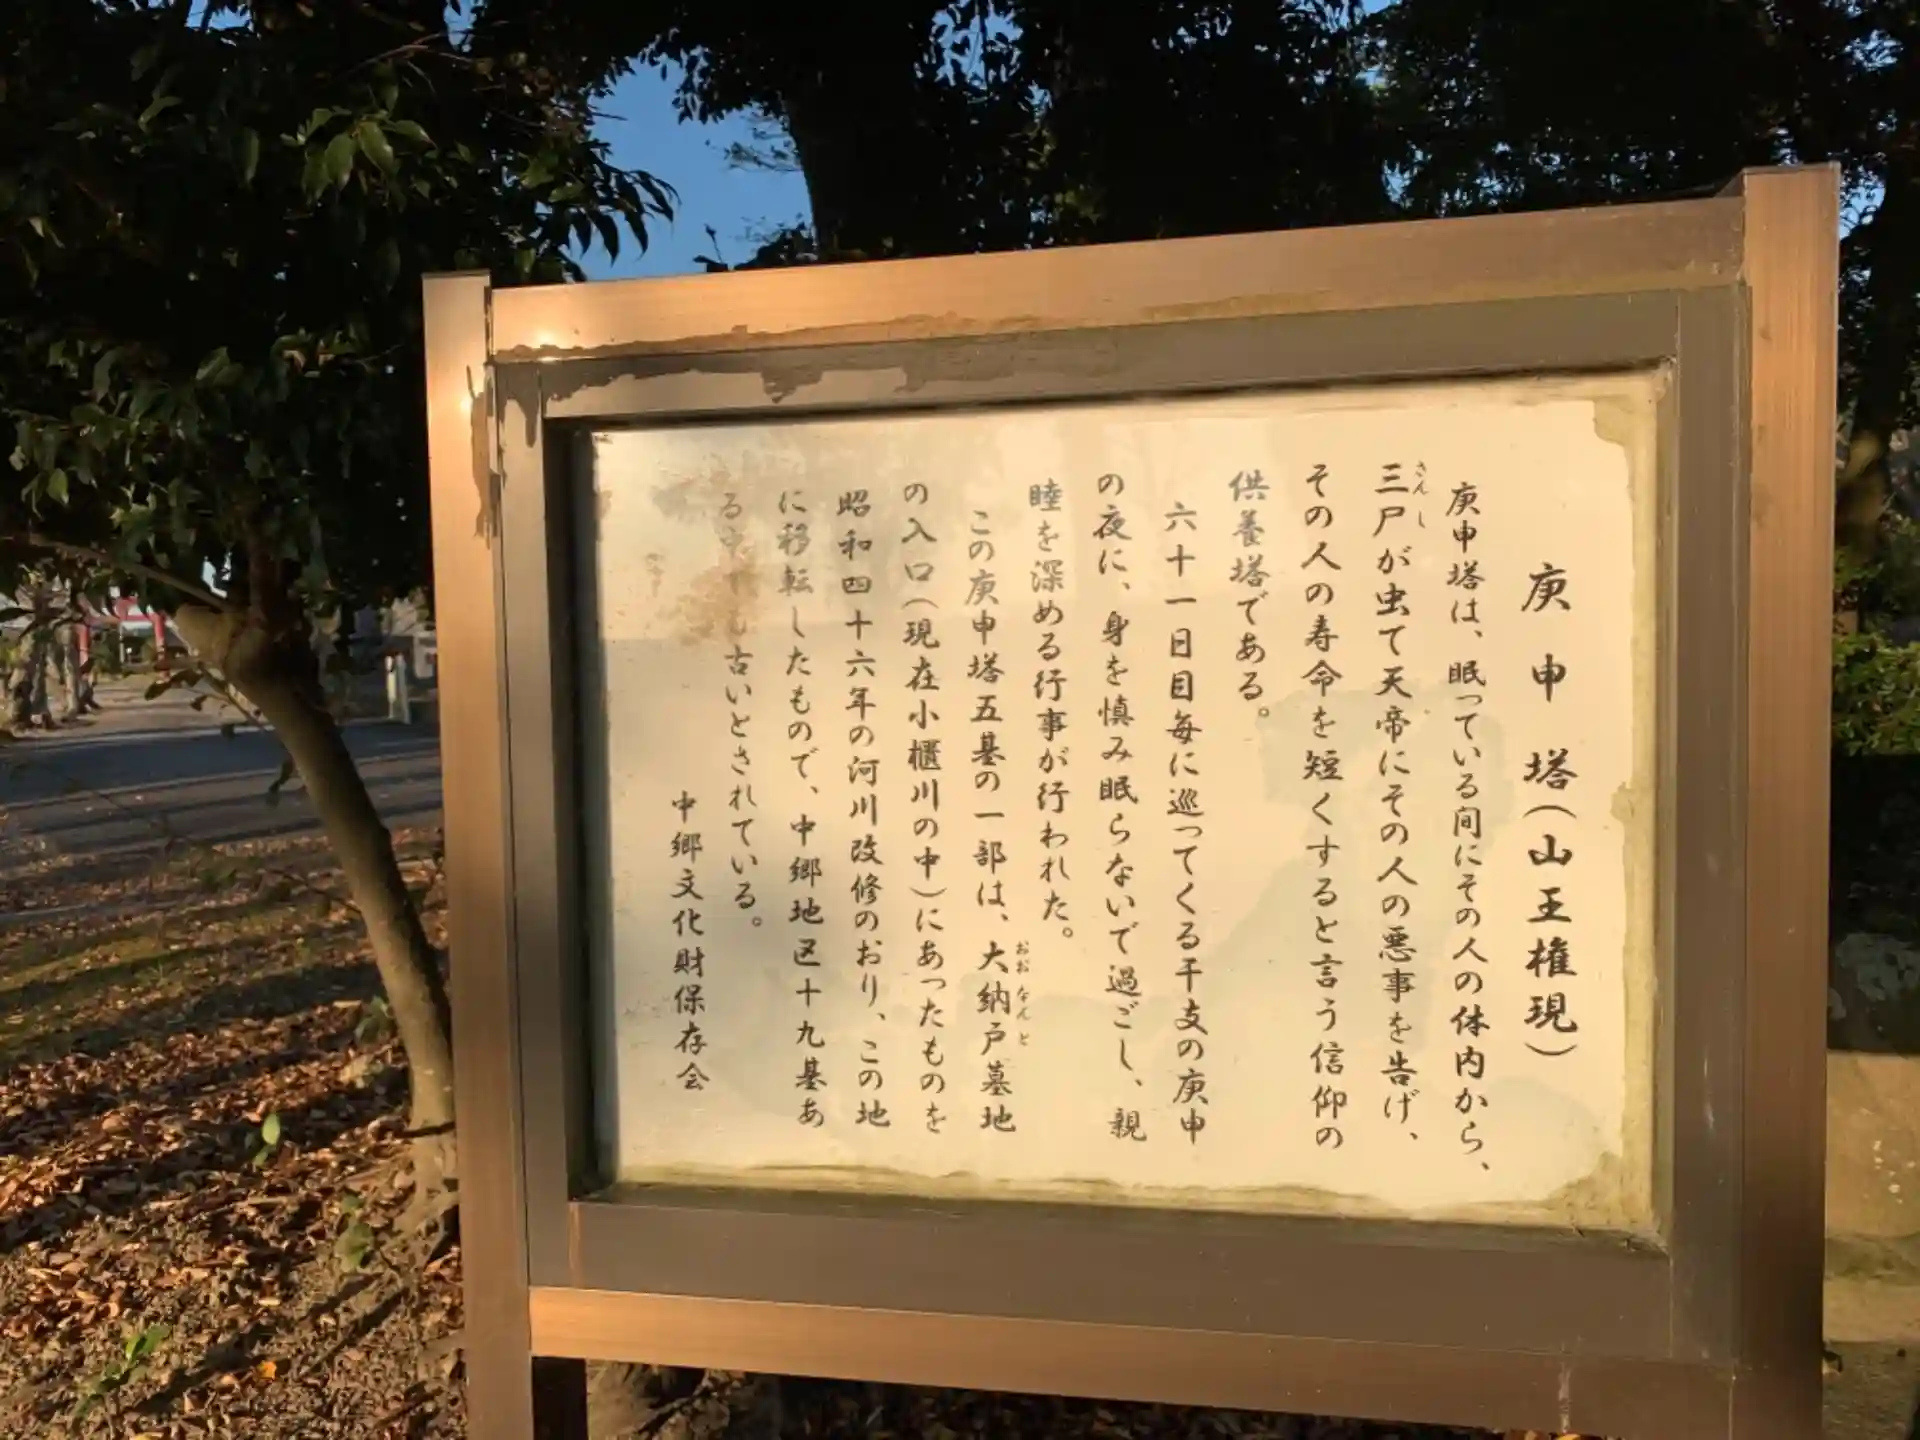 庚申塔(山王権現)
庚申塔は、眠っている間にその人の体内から、
三尸が虫て天帝にその人の悪事を告げ、
さんし
その人の寿命を短くすると言う信仰の
供養塔である。
六十一日目毎に巡ってくる干支の庚申
の夜に、身を慎み眠らないで過ごし、親
睦を深める行事が行われた。
この庚申塔五基の一部は、大納戸墓地
おおなんど
の入口(現在小櫃川の中)にあったものを
昭和四十六年の河川改修のおり、この地
に移転したもので、中郷地区十九基あ
る中でも古いとされている。
中郷文化財保存会